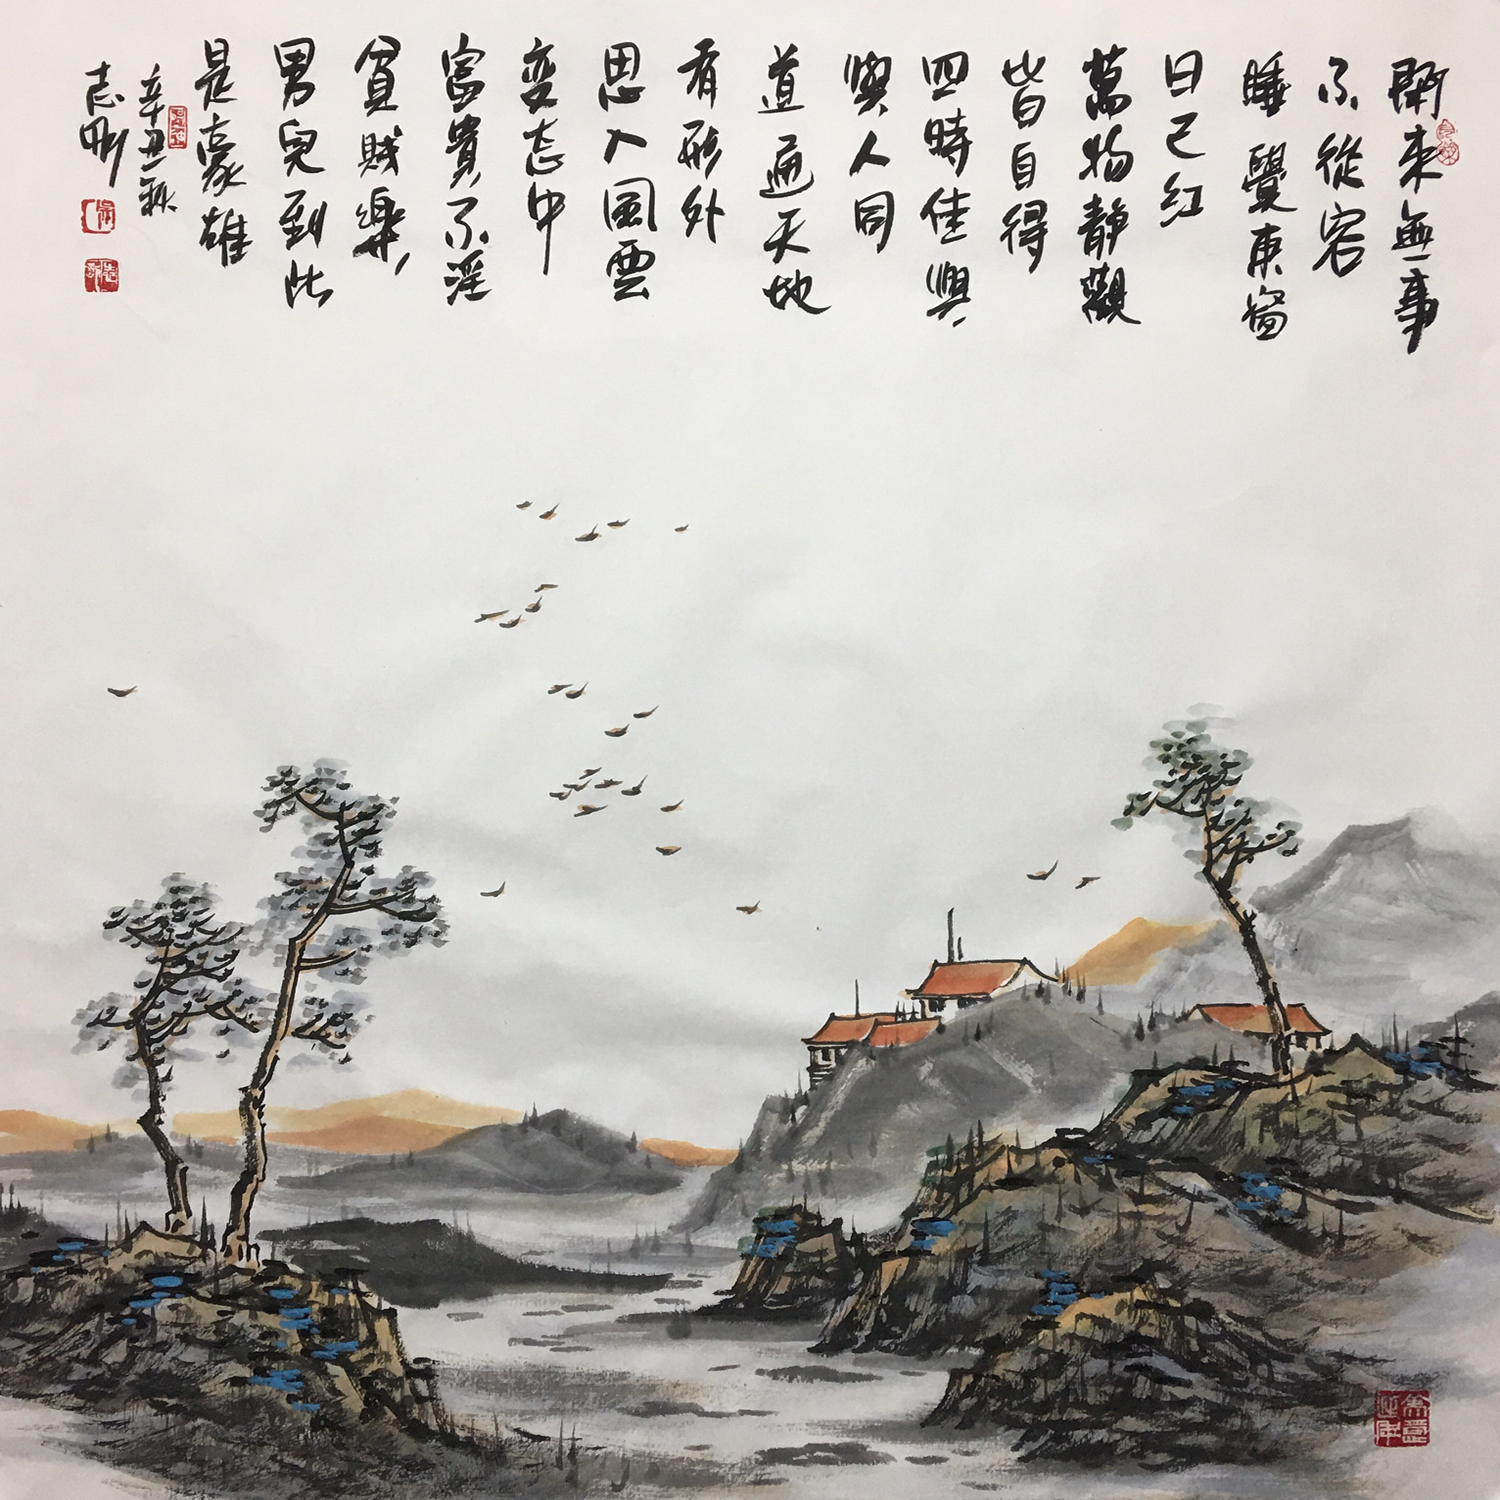 閒來無事
不從容
睡覺東窗
日已紅
萬物靜觀
皆自得
四時佳興
與人同
道通天地
有形外
思入風雲
變态中
富貴不淫
貧賤樂
男兒到此
是豪雄
辛丑秋
志剛